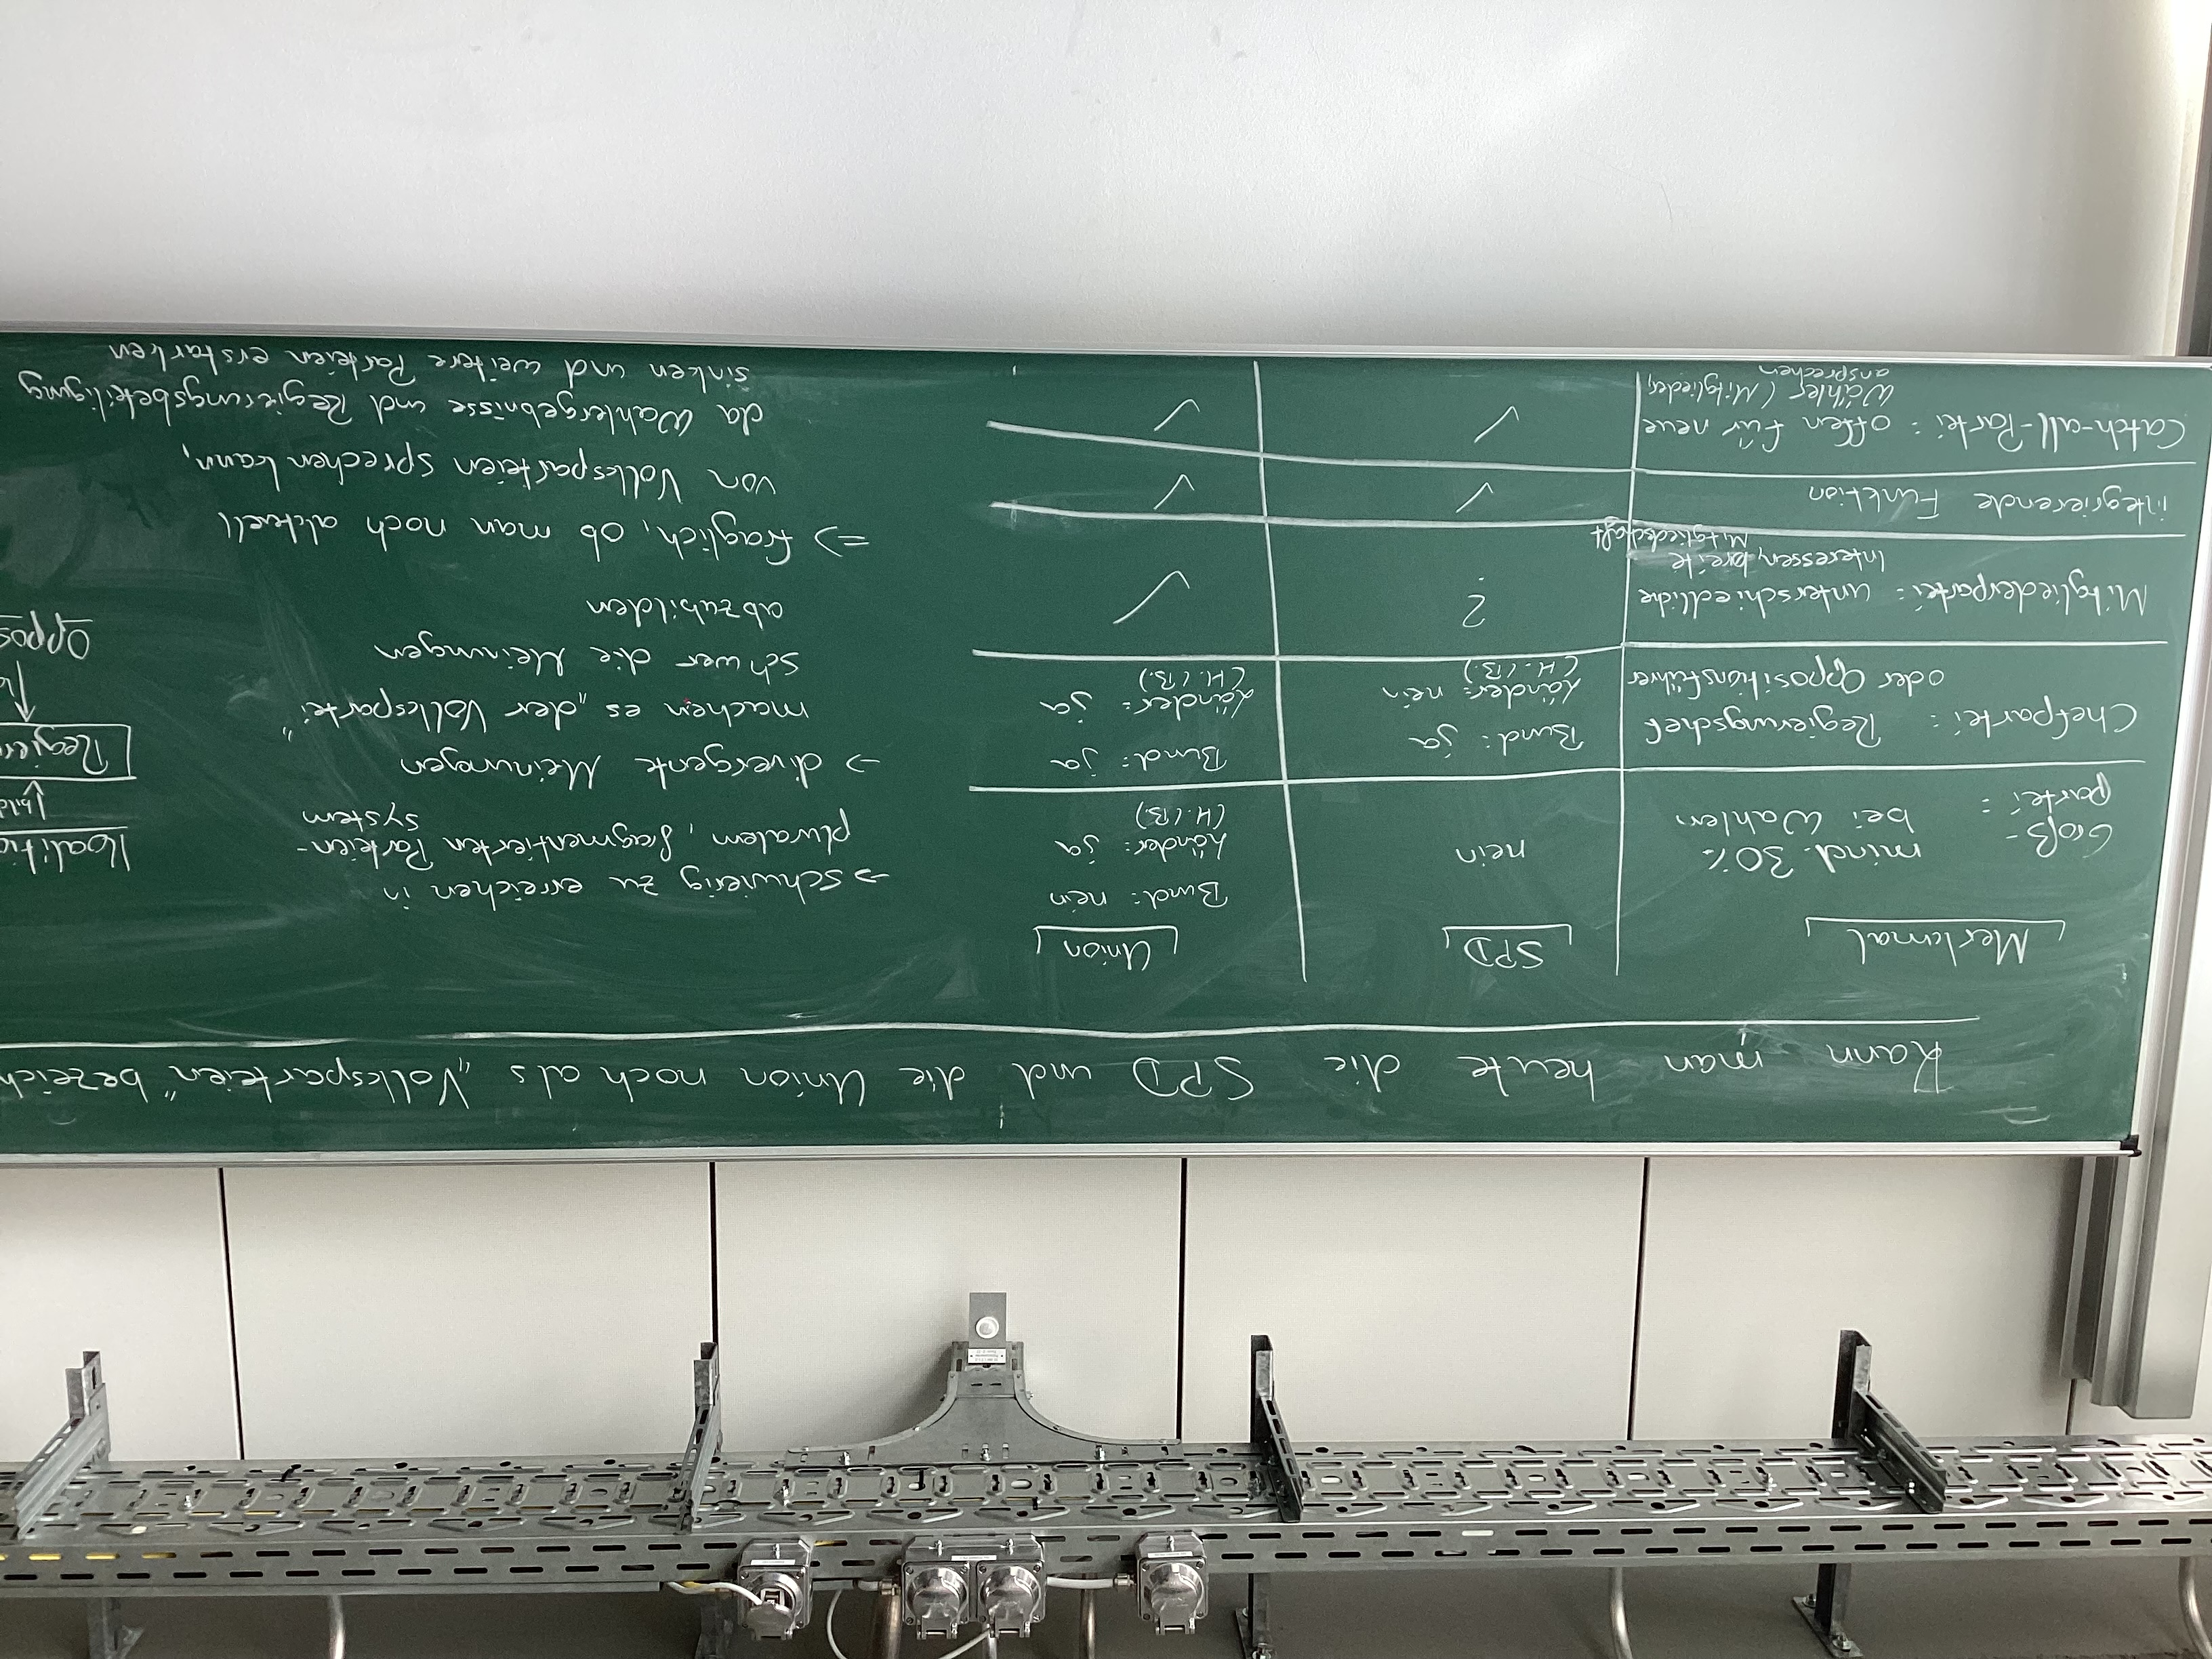 Kann man heute die SPD und die Union noch als „Volksparteien" bezeich
Merkmal
SPD
Union
Groß-
partei:
mind. 30%
bei Wahlen
nein
Bund: nein
Länder: ja
(H./B.)
Chefpartei: Regierungschef
oder Oppositionsführer
Bund: ja
Länder: nein
(H./B.)
Bund: ja
Länder: ja
(H./B.)
Mitgliederpartei: unterschiedliche
Interessen, breite
Mitgliedschaft
?
✓
integrierende Funktion
✓
✓
Catch-all-Partei: offen für neue
Wähler/Mitglieder,
ansprechen
✓
✓
→ schwierig zu erreichen in
pluralem, fragmentierten Parteien-
system
→ divergente Meinungen
machen es „der Volkspartei"
schwer die Meinungen
abzubilden
=> fraglich, ob man noch aktuell
von Volksparteien sprechen kann,
da Wahlergebnisse und Regierungsbeteiligung
sinken und weitere Parteien erstarken
Koalitio
↓ bild
Regier
↑
Oppos